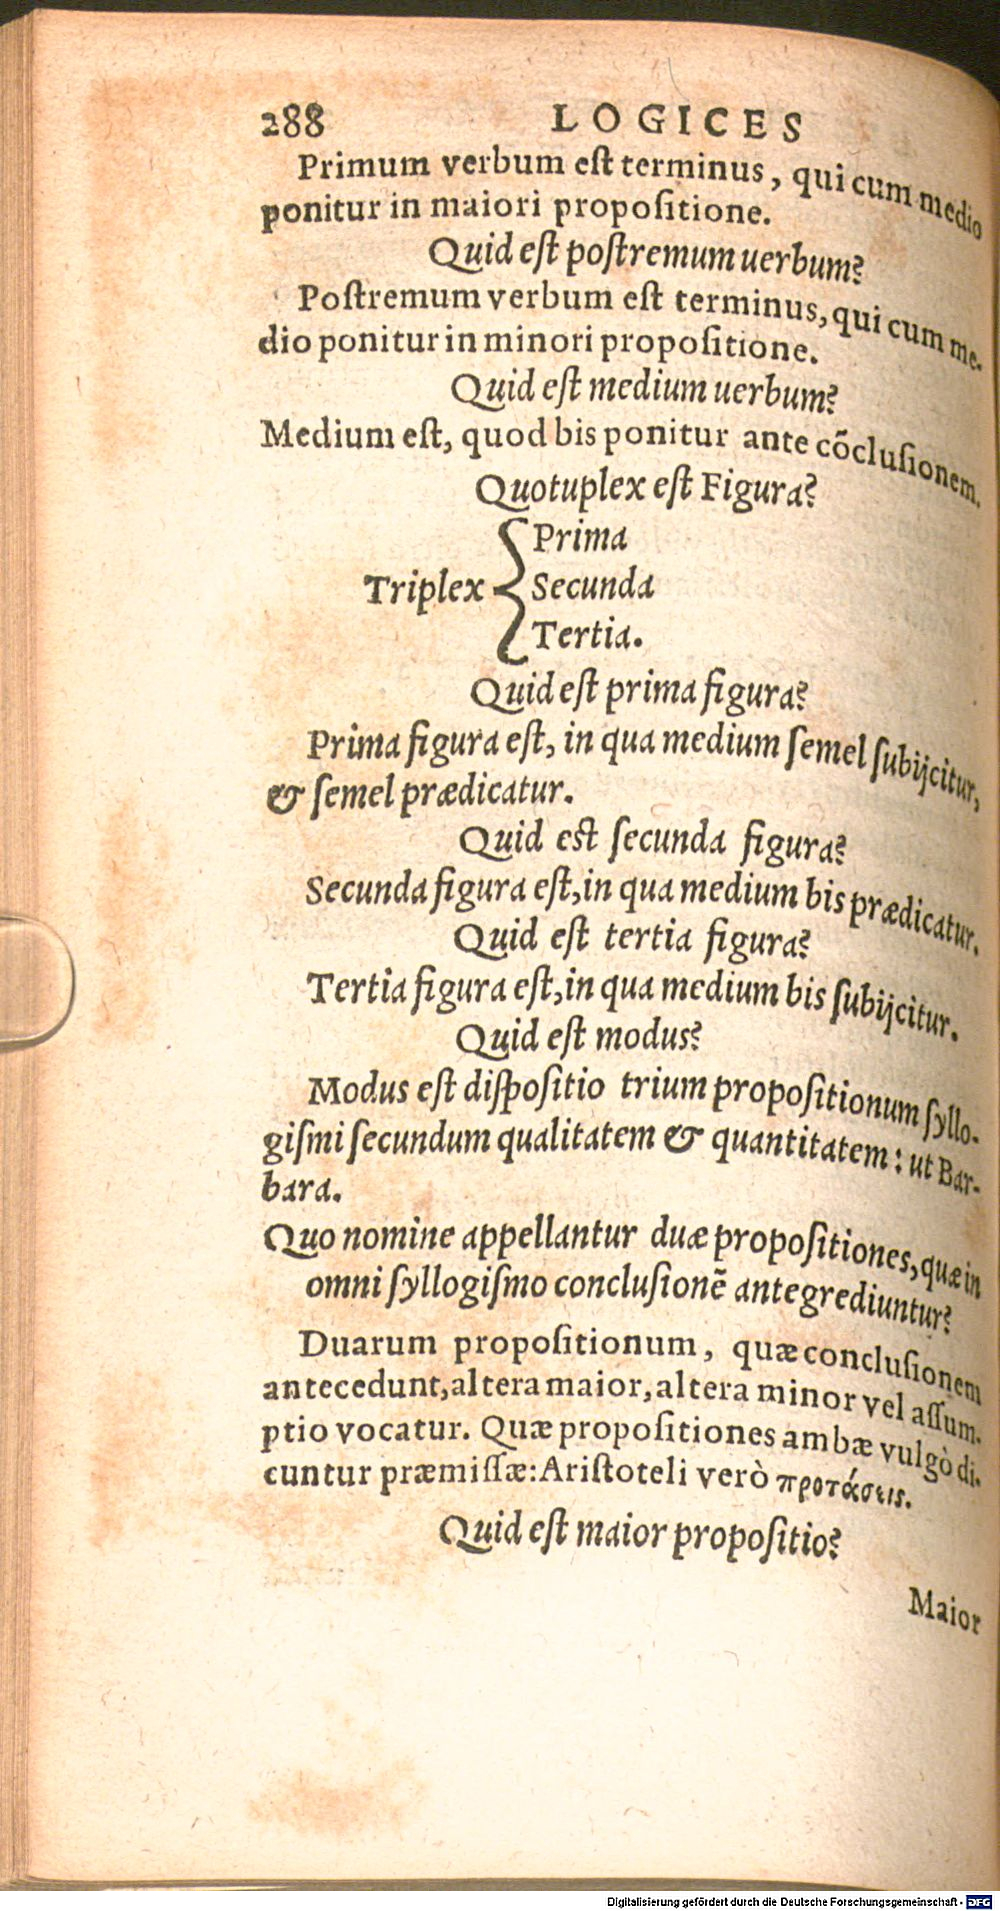 288 LOGICES
Primum verbum est terminus, qui cum medio
ponitur in maiori propositione.
Quid est postremum uerbum?
Postremum verbum est terminus, qui cum me-
dio ponitur in minori propositione.
Quid est medium uerbum?
Medium est, quod bis ponitur ante cõclusionem.
Quotuplex est Figura?
Prima
Triplex { Secunda
Tertia.
Quid est prima figura?
Prima figura est, in qua medium semel subijcitur,
& semel prædicatur.
Quid est secunda figura?
Secunda figura est, in qua medium bis prædicatur.
Quid est tertia figura?
Tertia figura est, in qua medium bis subijcitur.
Quid est modus?
Modus est dispositio trium propositionum syllo-
gismi secundum qualitatem & quantitatem: ut Bar-
bara.
Quo nomine appellantur duæ propositiones, quæ in
omni syllogismo conclusionẽ antegrediuntur?
Duarum propositionum, quæ conclusionem
antecedunt, altera maior, altera minor vel assum-
ptio vocatur. Quæ propositiones ambæ vulgò di-
cuntur præmissæ: Aristoteli verò προτάσεις.
Quid est maior propositio?
Maior
Digitalisierung gefördert durch die Deutsche Forschungsgemeinschaft - DFG